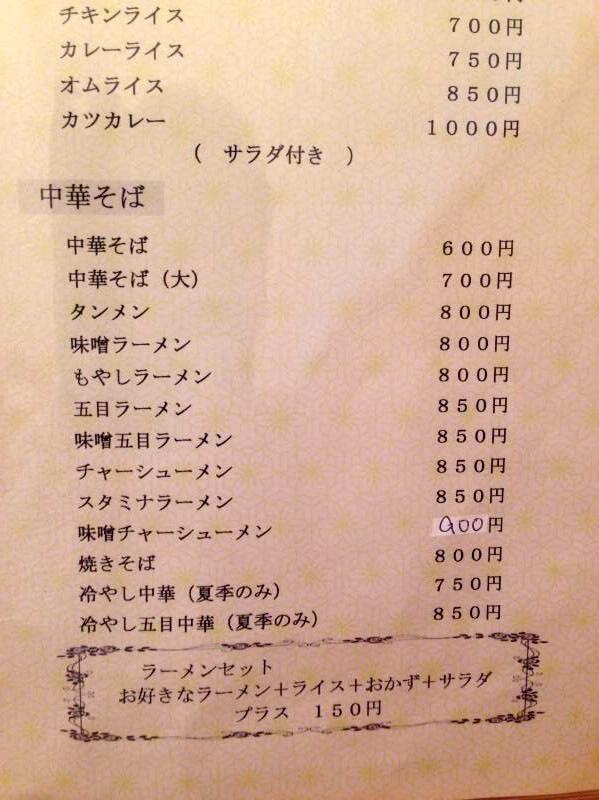 チキンライス ７００円
カレーライス ７５０円
オムライス ８５０円
カツカレー １０００円
（ サラダ付き ）
中華そば
中華そば ６００円
中華そば（大） ７００円
タンメン ８００円
味噌ラーメン ８００円
もやしラーメン ８００円
五目ラーメン ８５０円
味噌五目ラーメン ８５０円
チャーシューメン ８５０円
スタミナラーメン ８５０円
味噌チャーシューメン 900円
焼きそば ８００円
冷やし中華（夏季のみ） ７５０円
冷やし五目中華（夏季のみ） ８５０円
ラーメンセット
お好きなラーメン＋ライス＋おかず＋サラダ
プラス １５０円